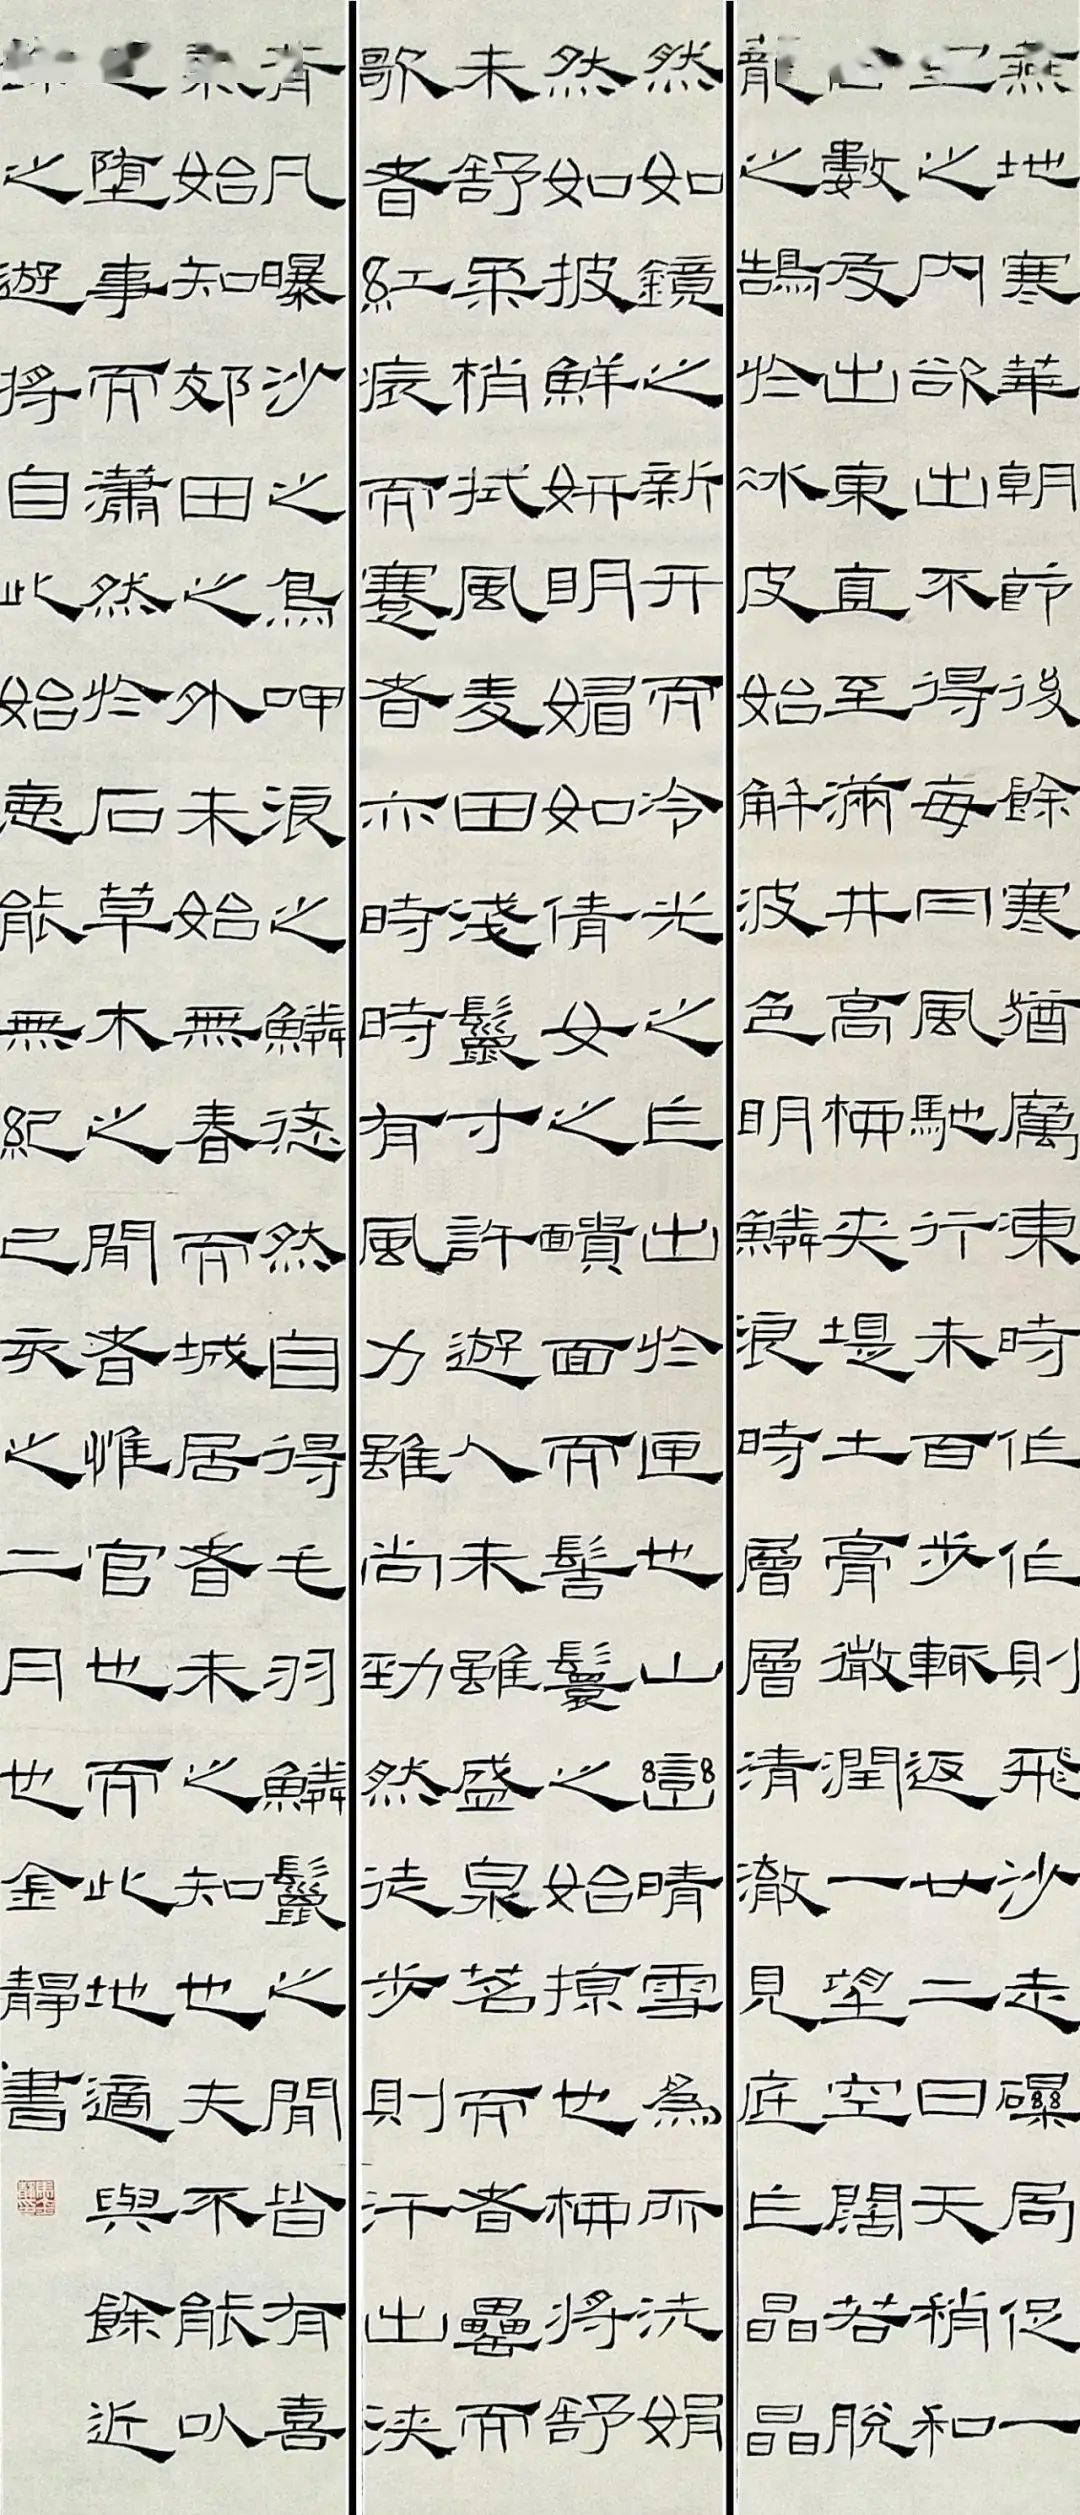 燕地寒華朝節後餘寒猶厲凍時作作則飛沙走礫局促一
室之內欲出不得每冒風馳行未百步輒返廿二日天稍和
數友出東直至滿井高柳夾堤土膏微潤一望空闊若脫
籠之鵠於冰皮始解波色明鱗浪時層層清澈見底乍晶晶
然如鏡之新開而冷光之乍出於匣也山巒晴雪為所洗娟
然如披鮮妍明媚如倩女之靧面而髻鬟之始掠也柳將舒
未舒柔梢拭風麦田淺鬣寸許遊人未雖盛泉茗而者罍而
歌者紅痕而蹇者亦時時有風力雖尚勁然徒步則汗出浹
背凡曝沙之鳥呷浪之鱗悠然自得毛羽鱗鬣之間皆有喜
氣始知郊田之外未始無春而城居者未之知也夫不能以
墮事而瀟然於石草木之間者惟官也而此地適與餘近
之遊將自此始惡能無紀己亥之二月也金靜書